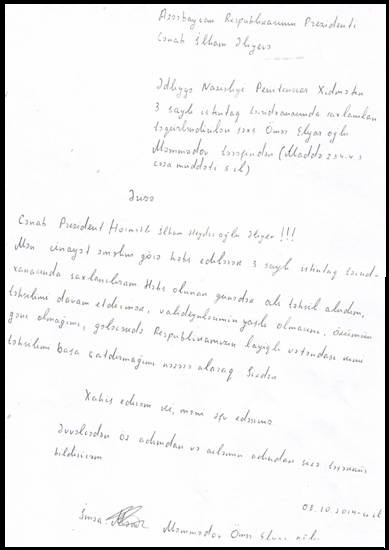 Azərbaycan Respublikasının Prezidenti
Cənab İlham Əliyevə
Ədliyyə Nazirliyi Penitensiar Xidmətin
3 saylı istintaq təcridxanasında saxlanılan
təqsirləndirilən şəxs Ömər Elyar oğlu
Məmmədov tərəfindən (Maddə 234.4.3
cəza müddəti 5 il)
Ərizə
Cənab Prezident Hörmətli İlham Heydər oğlu Əliyev !!!
Mən cinayət əməlinə görə həbs edilərək 3 saylı istintaq təcrid-
xanasında saxlanılıram Həbs olunan günədək ali təhsil alırdım,
təhsilimi davam etdirmək, valideynlərimin yaşlı olmasını, özümün
gənc olmağımı, gələcəkdə Respublikamızın layiqli vətəndaşı kimi
təhsilimi başa çatdırmağımı nəzərə alaraq Sizdən
Xahiş edirəm ki, məni əfv edəsiniz
Əvvəlcədən öz adımdan və ailəmin adından sizə təşəkkür
bildirirəm
03.10.2014-cü il
İmza Məmmədov Ömər